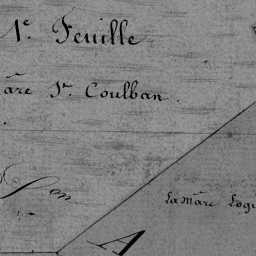 1e. Feuille
are St. Coulban.
son
La Mare Logi
A